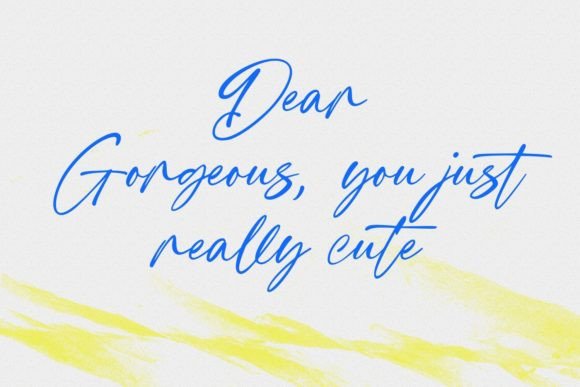 Dear
Gorgeous, you just
really cute